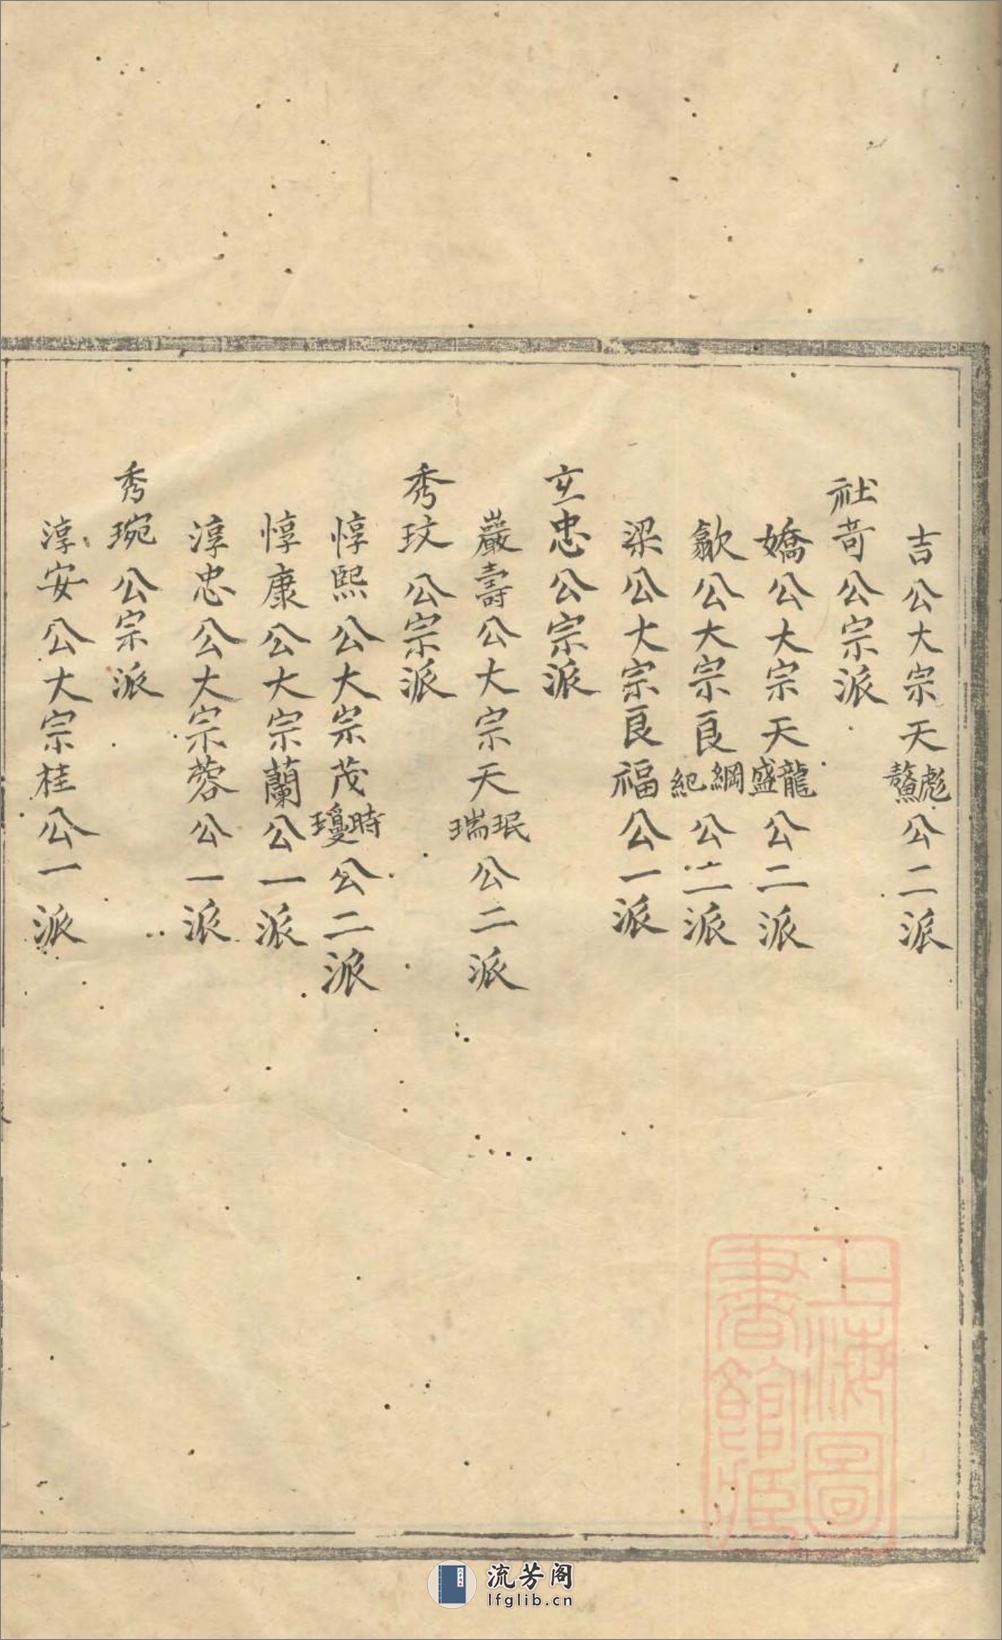 吉公大宗天彪鰲公二派
社苛公宗派
嬌公大宗天龍盛公二派
歙公大宗良綱紀公二派
梁公大宗良福公一派
玄忠公宗派
嚴壽公大宗天珉瑞公二派
秀玟公宗派
惇熙公大宗茂時瓊公二派
惇康公大宗蘭公一派
淳忠公大宗蓉公一派
秀琬公宗派
淳安公大宗桂公一派
上海圖
書館藏
流芳阁
lfglib.cn